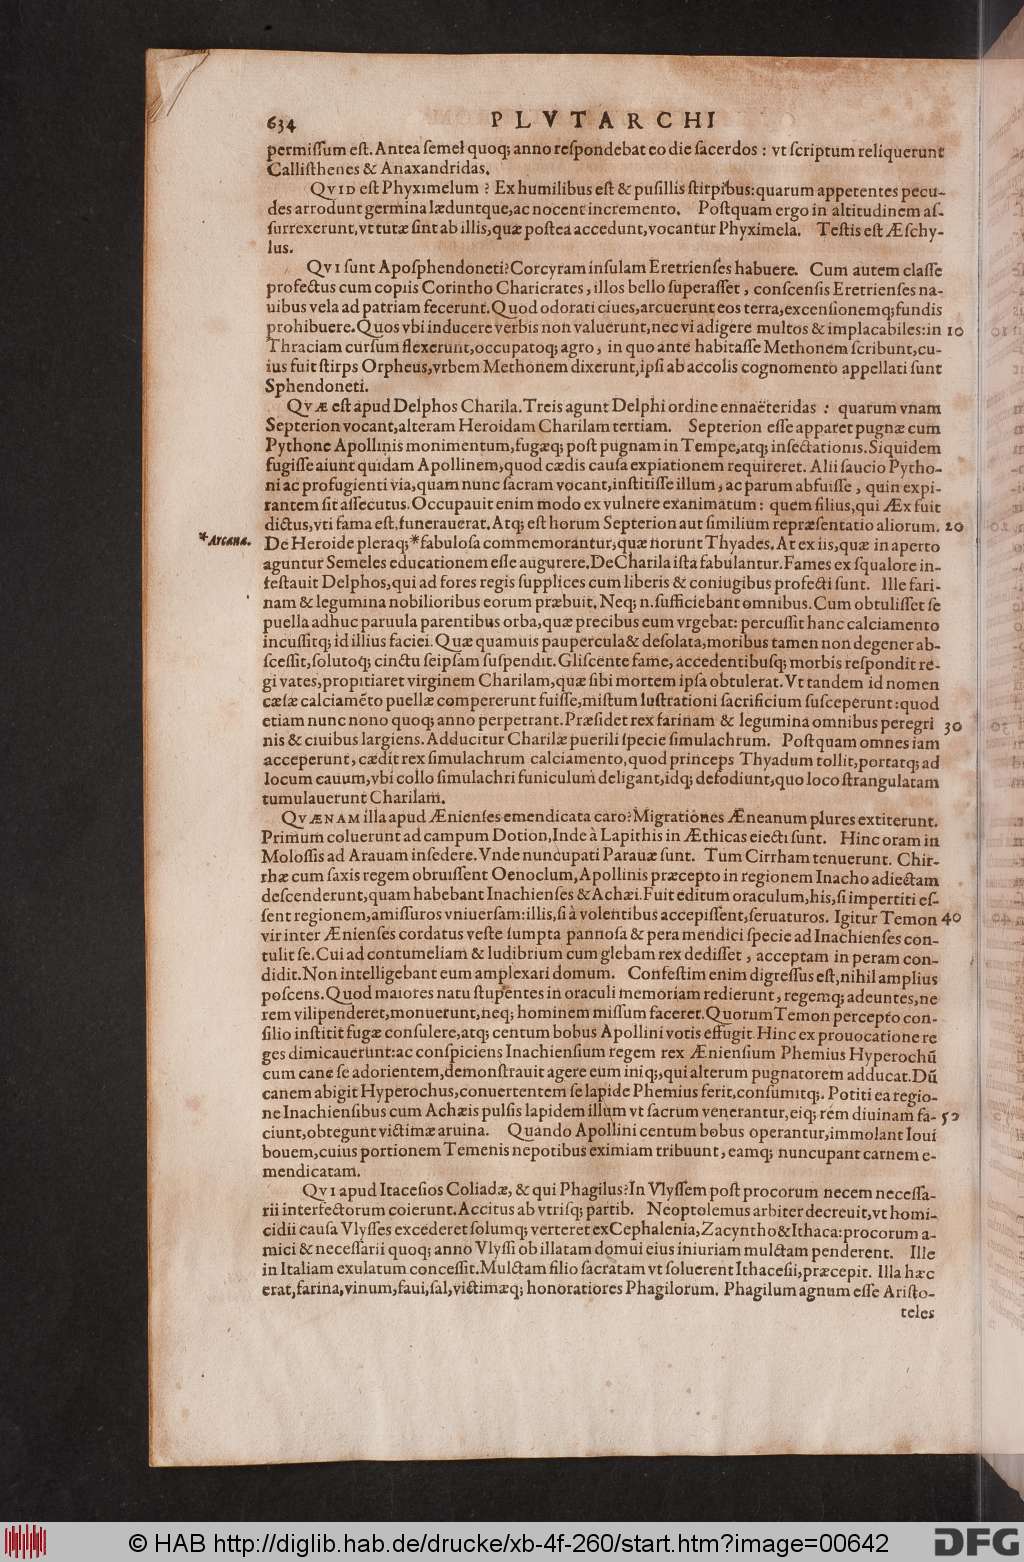 634 PLVTARCHI
permiſſum eſt. Antea ſemel quoq; anno reſpondebat eo die ſacerdos : vt ſcriptum reliquerunt
Calliſthenes & Anaxandridas.
QVID eſt Phyximelum ? Ex humilibus eſt & puſillis ſtirpibus: quarum appetentes pecu-
des arrodunt germina læduntque, ac nocent incremento. Poſtquam ergo in altitudinem aſ-
ſurrexerunt, vt tutæ ſint ab illis, quæ poſtea accedunt, vocantur Phyximela. Teſtis eſt Æſchy-
lus.
QVI ſunt Apoſphendoneti? Corcyram inſulam Eretrienſes habuere. Cum autem claſſe
profectus cum copiis Corintho Charicrates, illos bello ſuperaſſet, conſcenſis Eretrienſes na-
uibus vela ad patriam fecerunt. Quod odorati ciues, arcuerunt eos terra, excenſionemq; fundis
prohibuere. Quos vbi inducere verbis non valuerunt, nec vi adigere multos & implacabiles: in 10
Thraciam curſum flexerunt, occupatoq; agro, in quo ante habitaſſe Methonem ſcribunt, cu-
ius fuit ſtirps Orpheus, vrbem Methonem dixerunt, ipſi ab accolis cognomento appellati ſunt
Sphendoneti.
QVÆ eſt apud Delphos Charila. Treis agunt Delphi ordine ennaëteridas : quarum vnam
Septerion vocant, alteram Heroidam Charilam tertiam. Septerion eſſe apparet pugnæ cum
Pythone Apollinis monimentum, fugæq; poſt pugnam in Tempe, atq; inſectationis. Siquidem
fugiſſe aiunt quidam Apollinem, quod cædis cauſa expiationem requireret. Alii ſaucio Pytho-
ni ac profugienti via, quam nunc ſacram vocant, inſtitiſſe illum, ac parum abfuiſſe, quin expi-
rantem ſit aſſecutus. Occupauit enim modo ex vulnere exanimatum: quem filius, qui Æx fuit
dictus, vti fama eſt, funerauerat. Atq; eſt horum Septerion aut ſimilium repræſentatio aliorum. 20
*Arcana. De Heroide pleraq; *fabuloſa commemorantur, quæ norunt Thyades. At ex iis, quæ in aperto
aguntur Semeles educationem eſſe augurere. De Charila iſta fabulantur. Fames ex ſqualore in-
feſtauit Delphos, qui ad fores regis ſupplices cum liberis & coniugibus profecti ſunt. Ille fari-
nam & legumina nobilioribus eorum præbuit. Neq; n. ſufficiebant omnibus. Cum obtuliſſet ſe
puella adhuc paruula parentibus orba, quæ precibus eum vrgebat: percuſſit hanc calciamento
incuſſitq; id illius faciei. Quæ quamuis paupercula & deſolata, moribus tamen non degener ab-
ſceſſit, ſolutoq; cinctu ſeipſam ſuſpendit. Gliſcente fame, accedentibuſq; morbis reſpondit re-
gi vates, propitiaret virginem Charilam, quæ ſibi mortem ipſa obtulerat. Vt tandem id nomen
cæſæ calciamēto puellæ compererunt fuiſſe, miſtum luſtrationi ſacrificium ſuſceperunt: quod
etiam nunc nono quoq; anno perpetrant. Præſidet rex farinam & legumina omnibus peregri 30
nis & ciuibus largiens. Adducitur Charilæ puerili ſpecie ſimulachrum. Poſtquam omnes iam
acceperunt, cædit rex ſimulachrum calciamento, quod princeps Thyadum tollit, portatq; ad
locum cauum, vbi collo ſimulachri funiculum deligant, idq; defodiunt, quo loco ſtrangulatam
tumulauerunt Charilam.
QVÆNAM illa apud Ænienſes emendicata caro? Migrationes Æneanum plures extiterunt.
Primum coluerunt ad campum Dotion, Inde à Lapithis in Æthicas eiecti ſunt. Hinc oram in
Moloſſis ad Arauam inſedere. Vnde nuncupati Parauæ ſunt. Tum Cirrham tenuerunt. Chir-
rhæ cum ſaxis regem obruiſſent Oenoclum, Apollinis præcepto in regionem Inacho adiectam
deſcenderunt, quam habebant Inachienſes & Achæi. Fuit editum oraculum, his, ſi impertiti eſ-
ſent regionem, amiſſuros vniuerſam: illis, ſi à volentibus accepiſſent, ſeruaturos. Igitur Temon 40
vir inter Ænienſes cordatus veſte ſumpta pannoſa & pera mendici ſpecie ad Inachienſes con-
tulit ſe. Cui ad contumeliam & ludibrium cum glebam rex dediſſet, acceptam in peram con-
didit. Non intelligebant eum amplexari domum. Confeſtim enim digreſſus eſt, nihil amplius
poſcens. Quod maiores natu ſtupentes in oraculi memoriam redierunt, regemq; adeuntes, ne
rem vilipenderet, monuerunt, neq; hominem miſſum faceret. Quorum Temon percepto con-
ſilio inſtitit fugæ conſulere, atq; centum bobus Apollini votis effugit. Hinc ex prouocatione re
ges dimicauerunt: ac conſpiciens Inachienſium regem rex Ænienſium Phemius Hyperochū
cum cane ſe adorientem, demonſtrauit agere eum iniq;, qui alterum pugnatorem adducat. Dū
canem abigit Hyperochus, conuertentem ſe lapide Phemius ferit, conſumitq;. Potiti ea regio-
ne Inachienſibus cum Achæis pulſis lapidem illum vt ſacrum venerantur, eiq; rem diuinam fa- 50
ciunt, obtegunt victimæ aruina. Quando Apollini centum bobus operantur, immolant Ioui
bouem, cuius portionem Temenis nepotibus eximiam tribuunt, eamq; nuncupant carnem e-
mendicatam.
QVI apud Itaceſios Coliadæ, & qui Phagilus? In Vlyſſem poſt procorum necem neceſſa-
rii interfectorum coierunt. Accitus ab vtriſq; partib. Neoptolemus arbiter decreuit, vt homi-
cidii cauſa Vlyſſes excederet ſolumq; verteret ex Cephalenia, Zacyntho & Ithaca: procorum a-
mici & neceſſarii quoq; anno Vlyſſi ob illatam domui eius iniuriam mulctam penderent. Ille
in Italiam exulatum conceſſit. Mulctam filio ſacratam vt ſoluerent Ithaceſii, præcepit. Illa hæc
erat, farina, vinum, faui, ſal, victimæq; honoratiores Phagilorum. Phagilum agnum eſſe Ariſto-
teles
© HAB http://diglib.hab.de/drucke/xb-4f-260/start.htm?image=00642 DFG